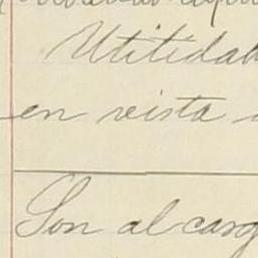 Utitidad
en vista
Son al carg